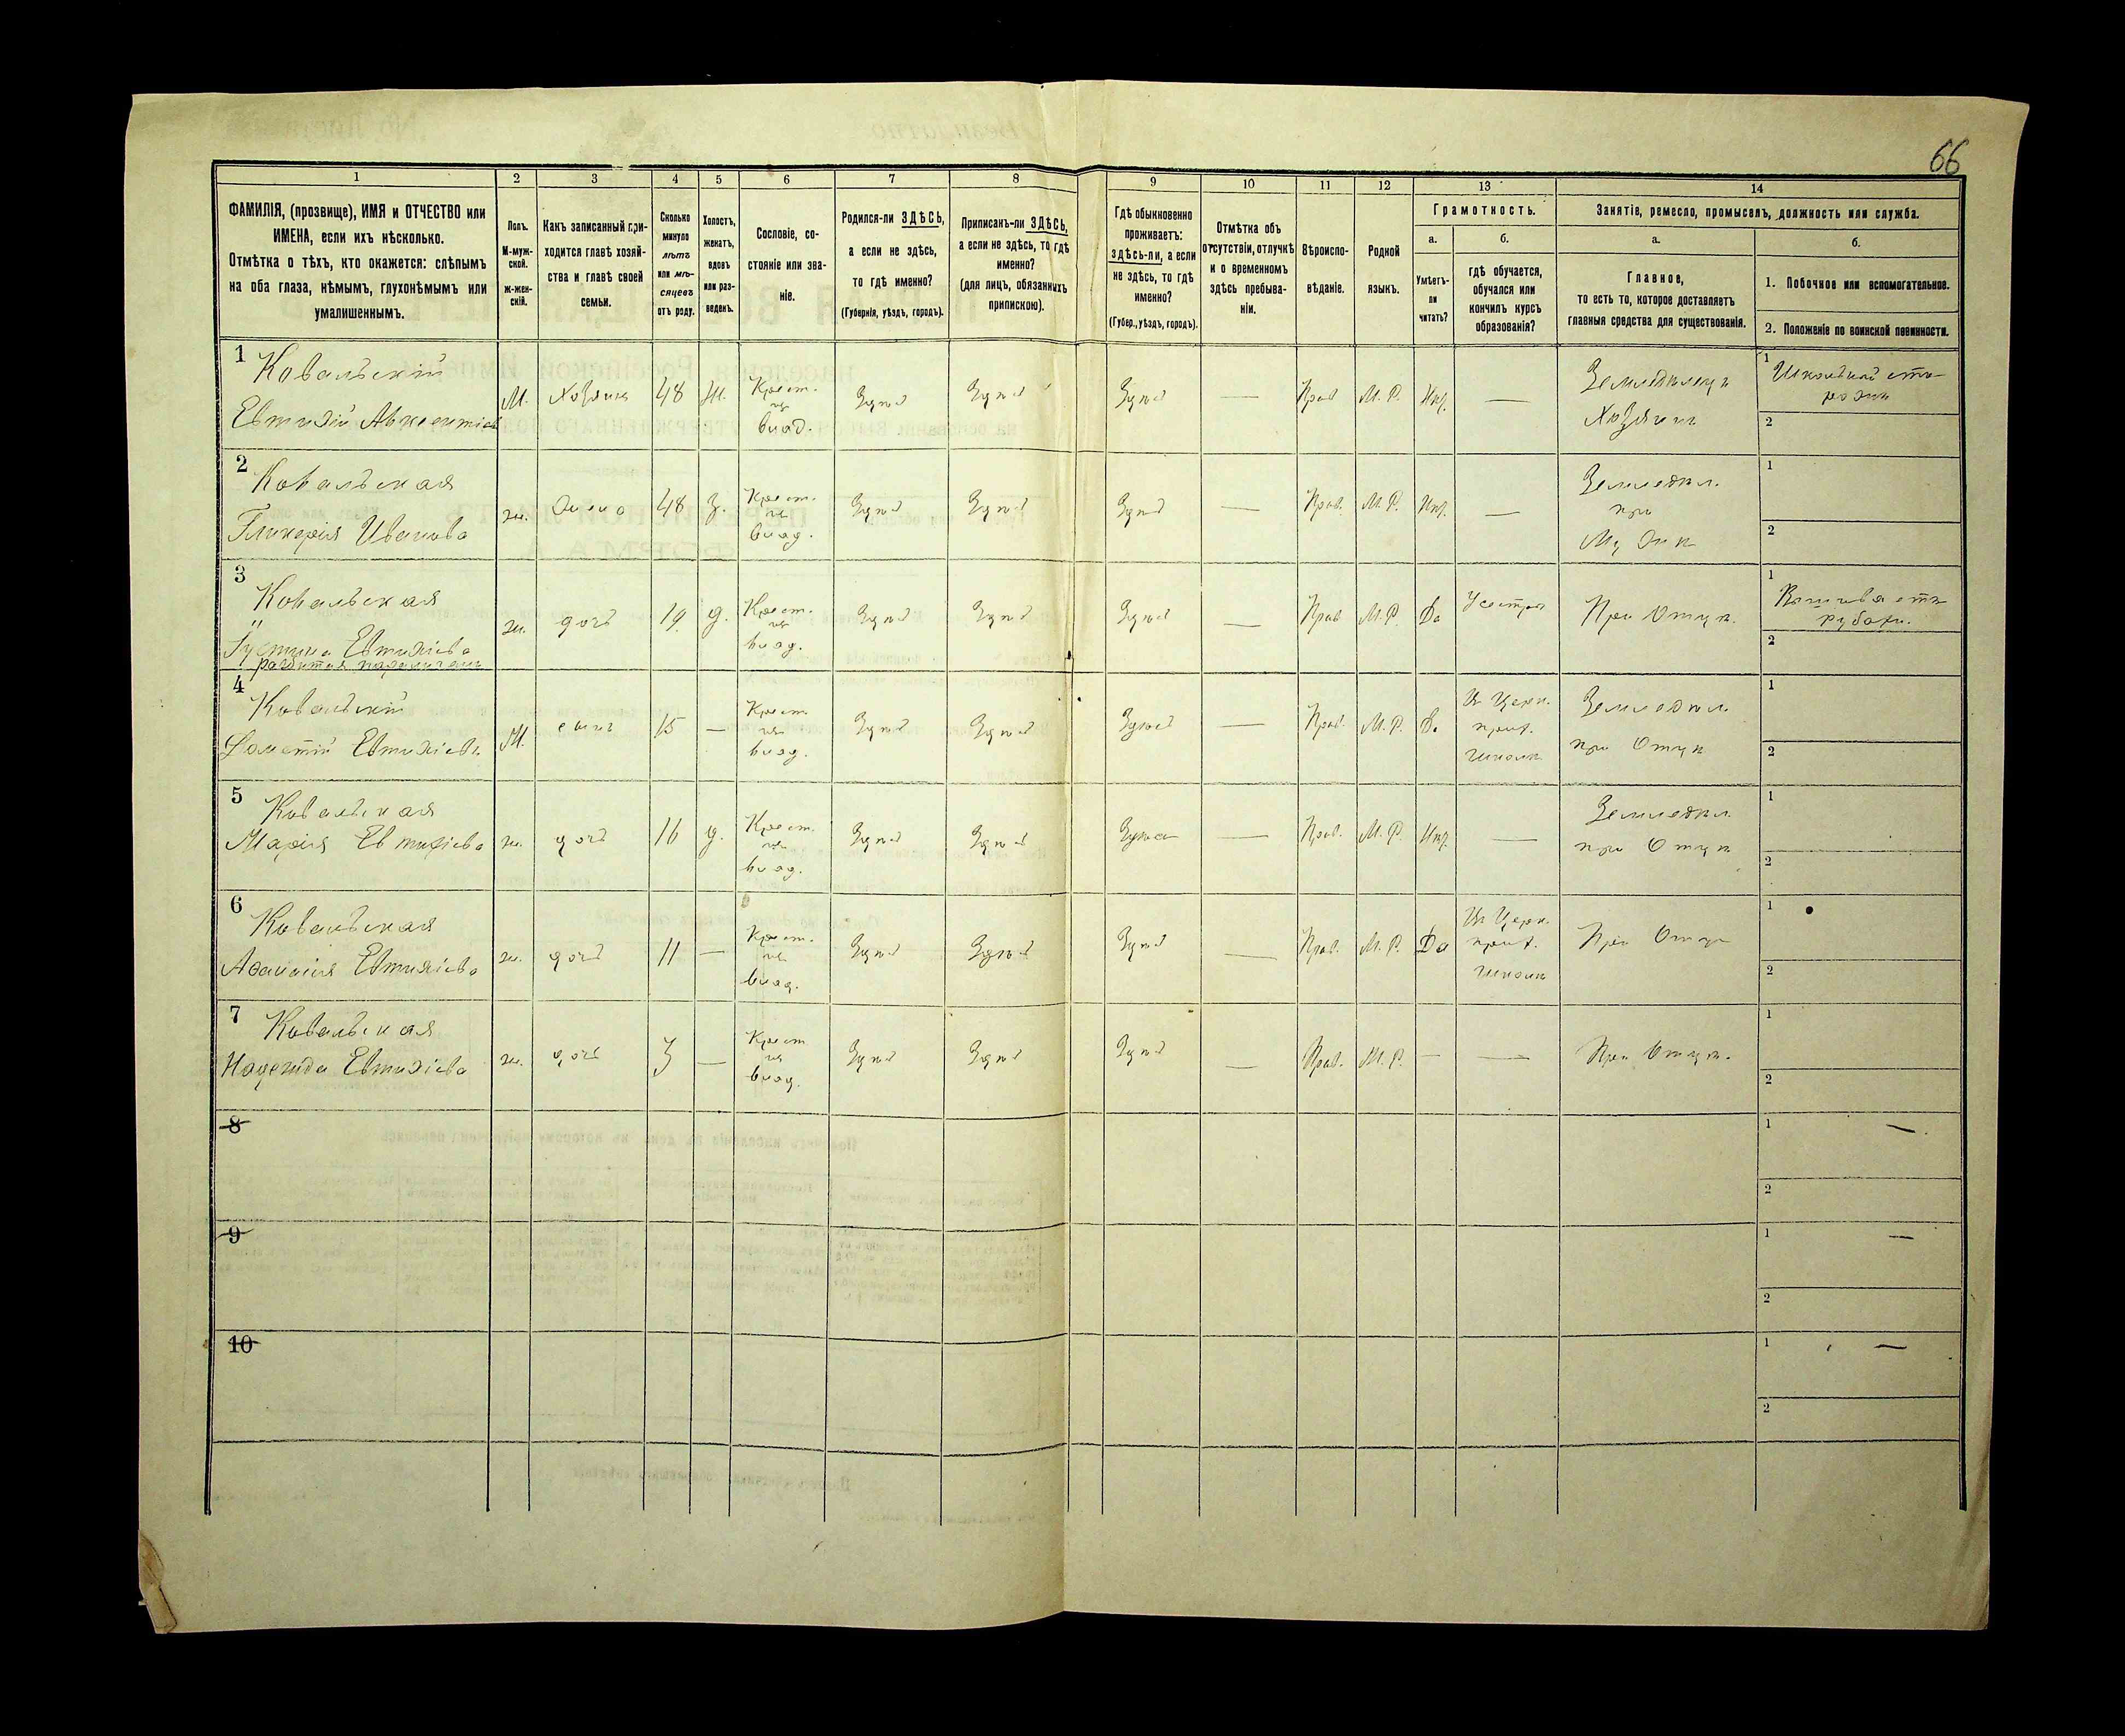 66
1 2 3 4 5 6 7 8 9 10 11 12 13 14
ФАМИЛІЯ, (прозвище), ИМЯ и ОТЧЕСТВО или
ИМЕНА, если ихъ нѣсколько.
Отмѣтка о тѣхъ, кто окажется: слѣпымъ
на оба глаза, нѣмымъ, глухонѣмымъ или
умалишеннымъ.
Полъ.
М-муж-
ской.
ж-жен-
скій.
Какъ записанный при-
ходится главѣ хозяй-
ства и главѣ своей
семьи.
Сколько
минуло
лѣтъ
или мѣ-
сяцевъ
отъ роду.
Холостъ,
женатъ,
вдовъ
или раз-
веденъ.
Сословіе, со-
стояніе или зва-
ніе.
Родился-ли ЗДѢСЬ,
а если не здѣсь,
то гдѣ именно?
(Губернія, уѣздъ, городъ).
Приписанъ-ли ЗДѢСЬ,
а если не здѣсь, то гдѣ
именно?
(для лицъ, обязанныхъ
припискою).
Гдѣ обыкновенно
проживаетъ:
здѣсь-ли, а если
не здѣсь, то гдѣ
именно?
(Губер., уѣздъ, городъ).
Отмѣтка объ
отсутствіи, отлучкѣ
и о временномъ
здѣсь пребыва-
ніи.
Вѣроиспо-
вѣданіе.
Родной
языкъ.
Грамотность.
а.
Умѣетъ-
ли
читать?
б.
гдѣ обучается,
обучался или
кончилъ курсъ
образованія?
Занятіе, ремесло, промыселъ, должность или служба.
а.
Главное,
то есть то, которое доставляетъ
главныя средства для существованія.
б.
1. Побочное или вспомогательное.
2. Положеніе по воинской повинности.
1
Ковальскій
Евтихій Авксентіев
М. Хозяин 48 Ж.
Крест.
влад.
Здѣсь Здѣсь Здѣсь — Прав М. Р. Нѣт —
Земледѣлецъ
Хозяинъ
1
Школьный сто-
рожъ
2
2
Ковальская
Гликерія Иванова
ж. Жена 48 З.
Крест.
влад.
Здѣсь Здѣсь Здѣсь — Прав. М. Р. Нѣт —
Земледѣл.
при
Мужѣ
1
2
3
Ковальская
Іустина Евтихіева
разбитая параличемъ
ж. дочь 19 д.
Крест.
влад.
Здѣсь Здѣсь Здѣсь — Прав М. Р. Да
У сестры
При Отцѣ.
1
рубахи.
2
4
Ковальскій
Дометій Евтихіевъ
М. сынъ 15 —
Крест.
влад.
Здѣсь Здѣсь Здѣсь — Прав. М. Р. Да
Въ Церк.
прих.
школѣ
Земледѣл.
при Отцѣ
1
2
5
Ковальская
Марія Евтихіева
ж. дочь 16 д.
Крест.
влад.
Здѣсь Здѣсь Здѣсь — Прав. М. Р. Нѣт —
Земледѣл.
при Отцѣ
1
2
6
Ковальская
Афанасія Евтихіева
ж. дочь 11 —
Крест.
влад.
Здѣсь Здѣсь Здѣсь — Прав. М. Р. Да
Въ Церк.
прих.
школѣ
При Отцѣ
1
2
7
Ковальская
Надежда Евтихіева
ж. дочь 3 —
Крест
влад.
Здѣсь Здѣсь Здѣсь — Прав. М. Р. — —
При Отцѣ.
1
2
8
1 —
2
9
1 —
2
10
1 —
2